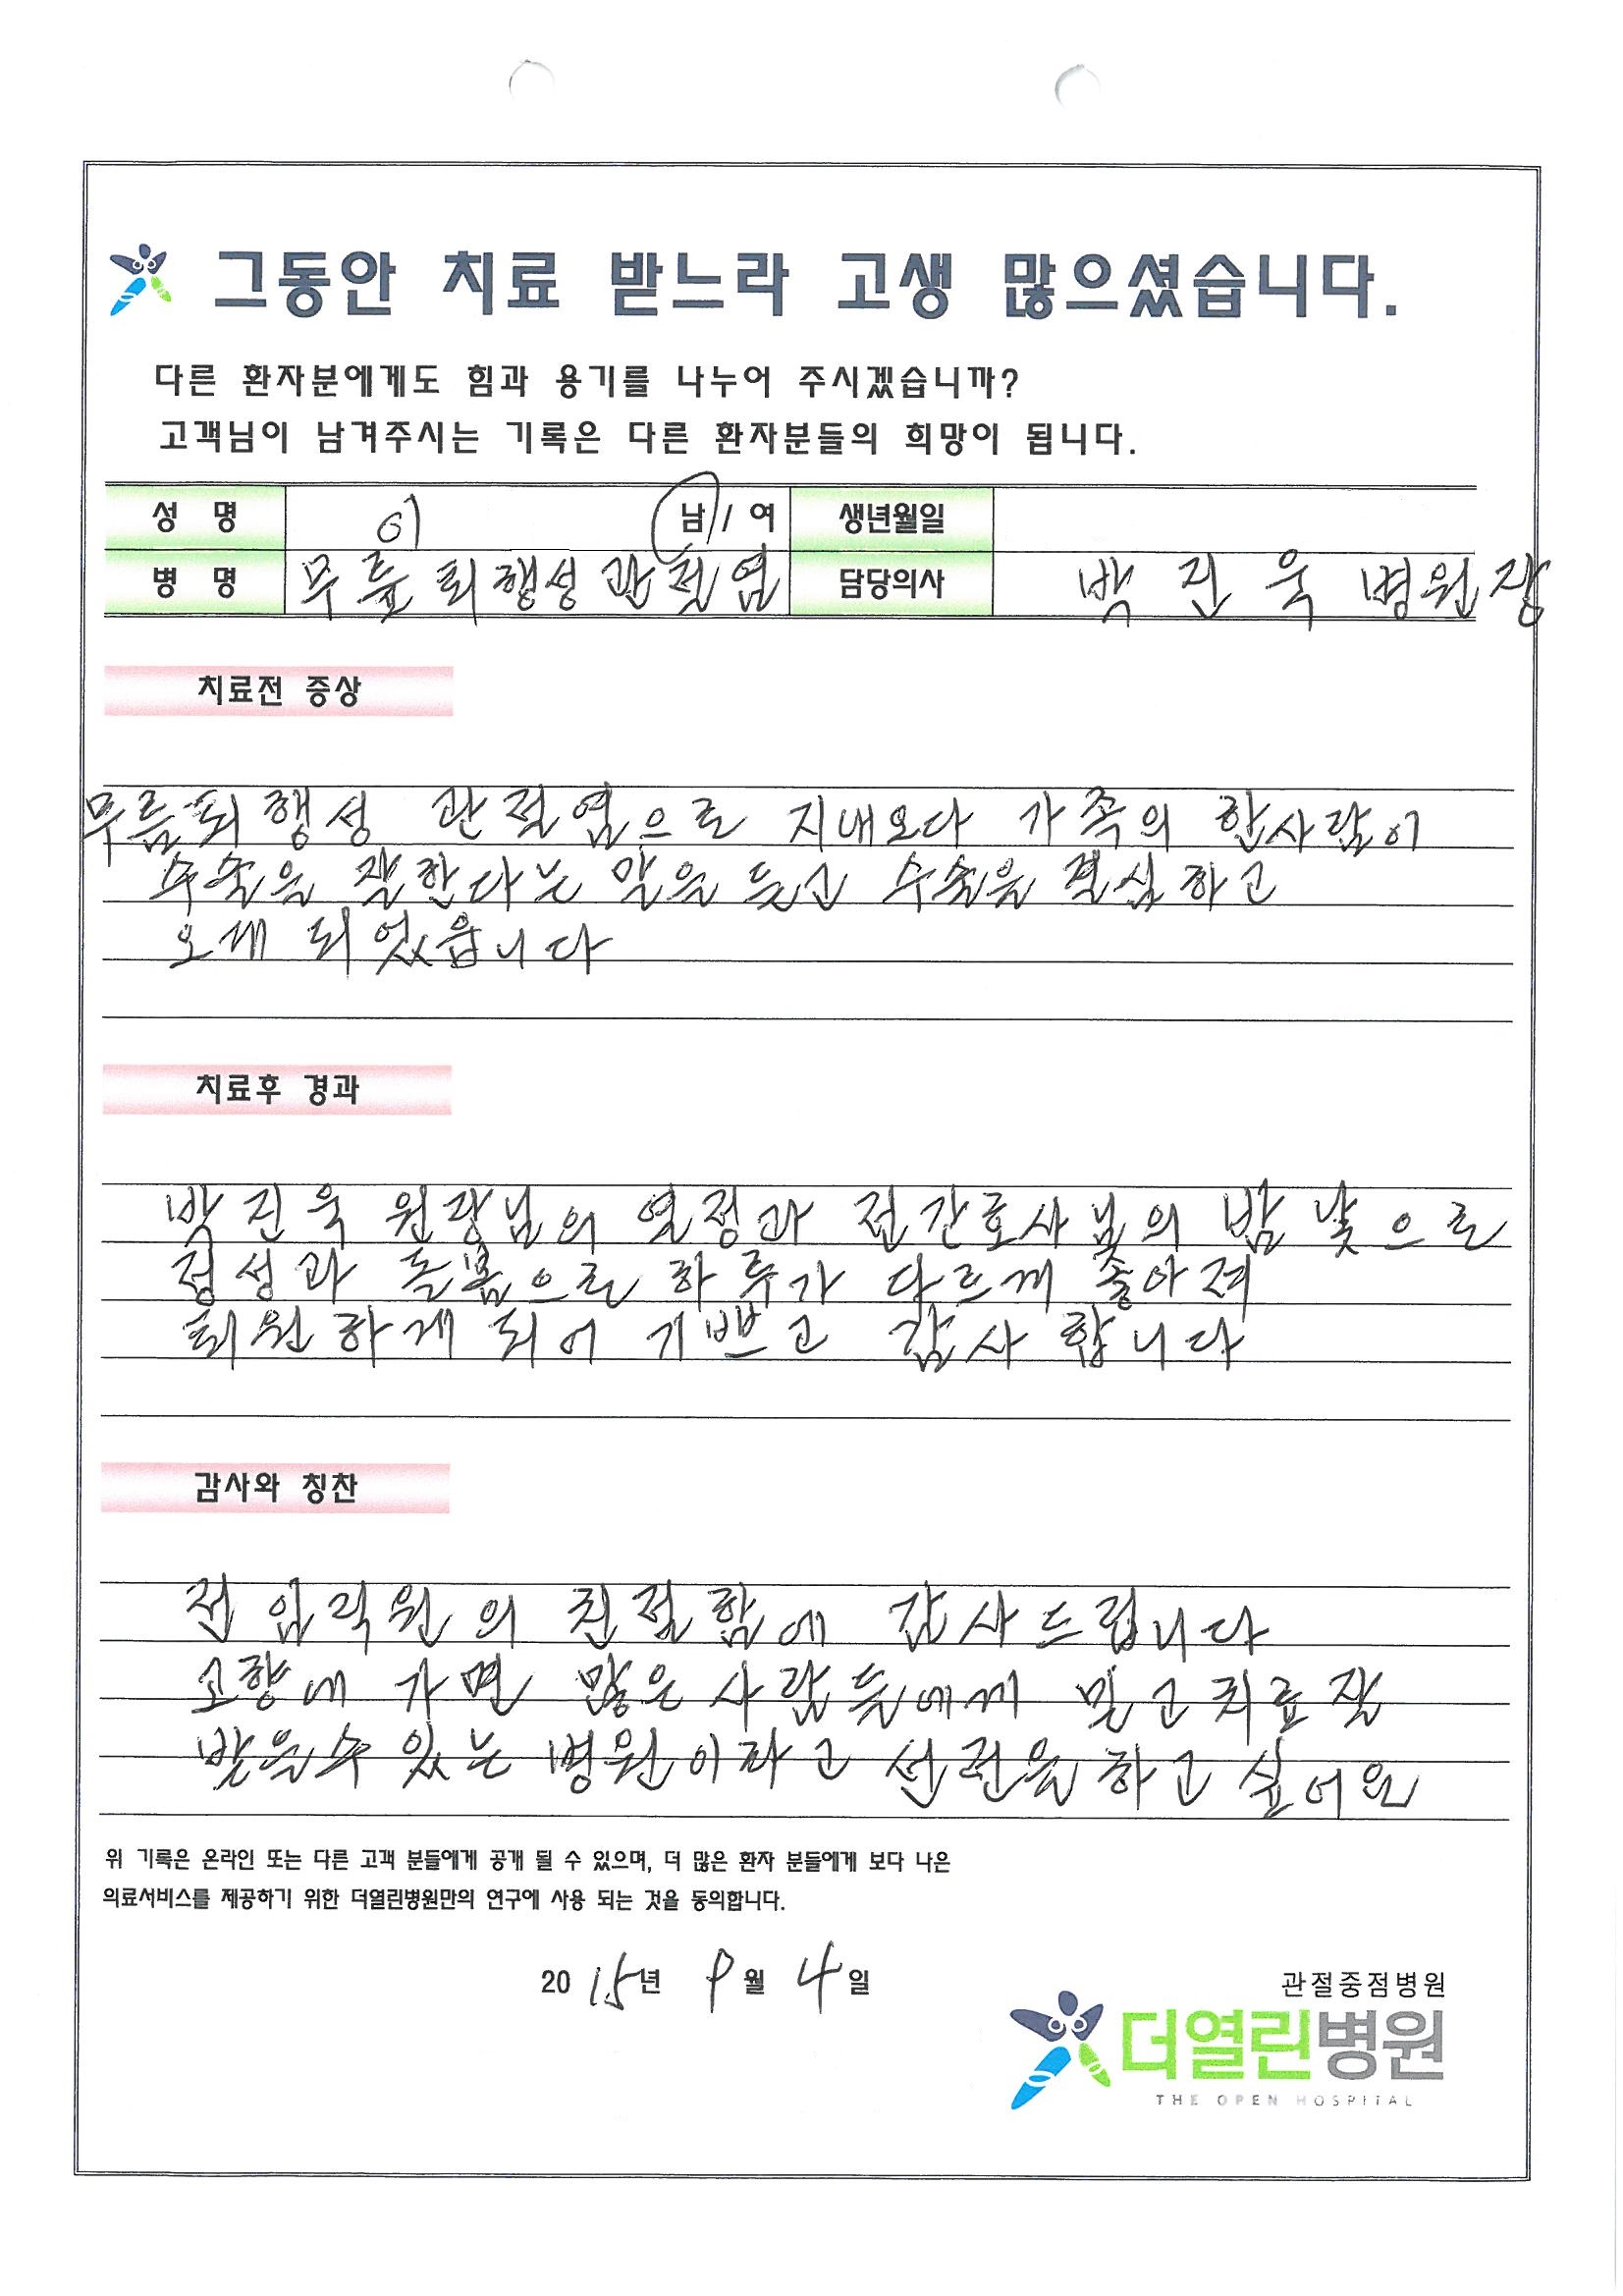 그동안 치료 받느라 고생 많으셨습니다.
다른 환자분에게도 힘과 용기를 나누어 주시겠습니까?
고객님이 남겨주시는 기록은 다른 환자분들의 희망이 됩니다.
성 명 이 남 / 여 생년월일
병 명 무릎 퇴행성 관절염 담당의사 박진욱 병원장
치료전 증상
무릎퇴행성 관절염으로 지내오다 가족의 한사람이
수술을 잘한다는 말을 듣고 수술을 결심하고
오게 되었읍니다
치료후 경과
박진욱 원장님의 열정과 전간호사님의 밤낮으로
정성과 돌봄으로 하루가 다르게 좋아져
퇴원하게 되어 기쁘고 감사 합니다
감사와 칭찬
전 임직원의 친절함에 감사드립니다
고향에 가면 많은 사람들에게 믿고치료잘
받을수 있는 병원이라고 선전을 하고 싶어요
위 기록은 온라인 또는 다른 고객 분들에게 공개 될 수 있으며, 더 많은 환자 분들에게 보다 나은
의료서비스를 제공하기 위한 더열린병원만의 연구에 사용 되는 것을 동의합니다.
2015년 9월 4일
관절중점병원
더열린병원
THE OPEN HOSPITAL